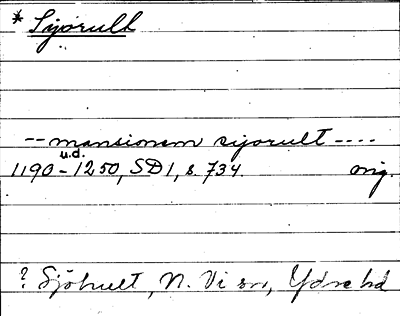 * Sijorult
-- mansionem sijorult ----
u.d.
1190-1250, SD1, s. 734. orig.
? Sjöhult, N. Vi sn, Ydre hd